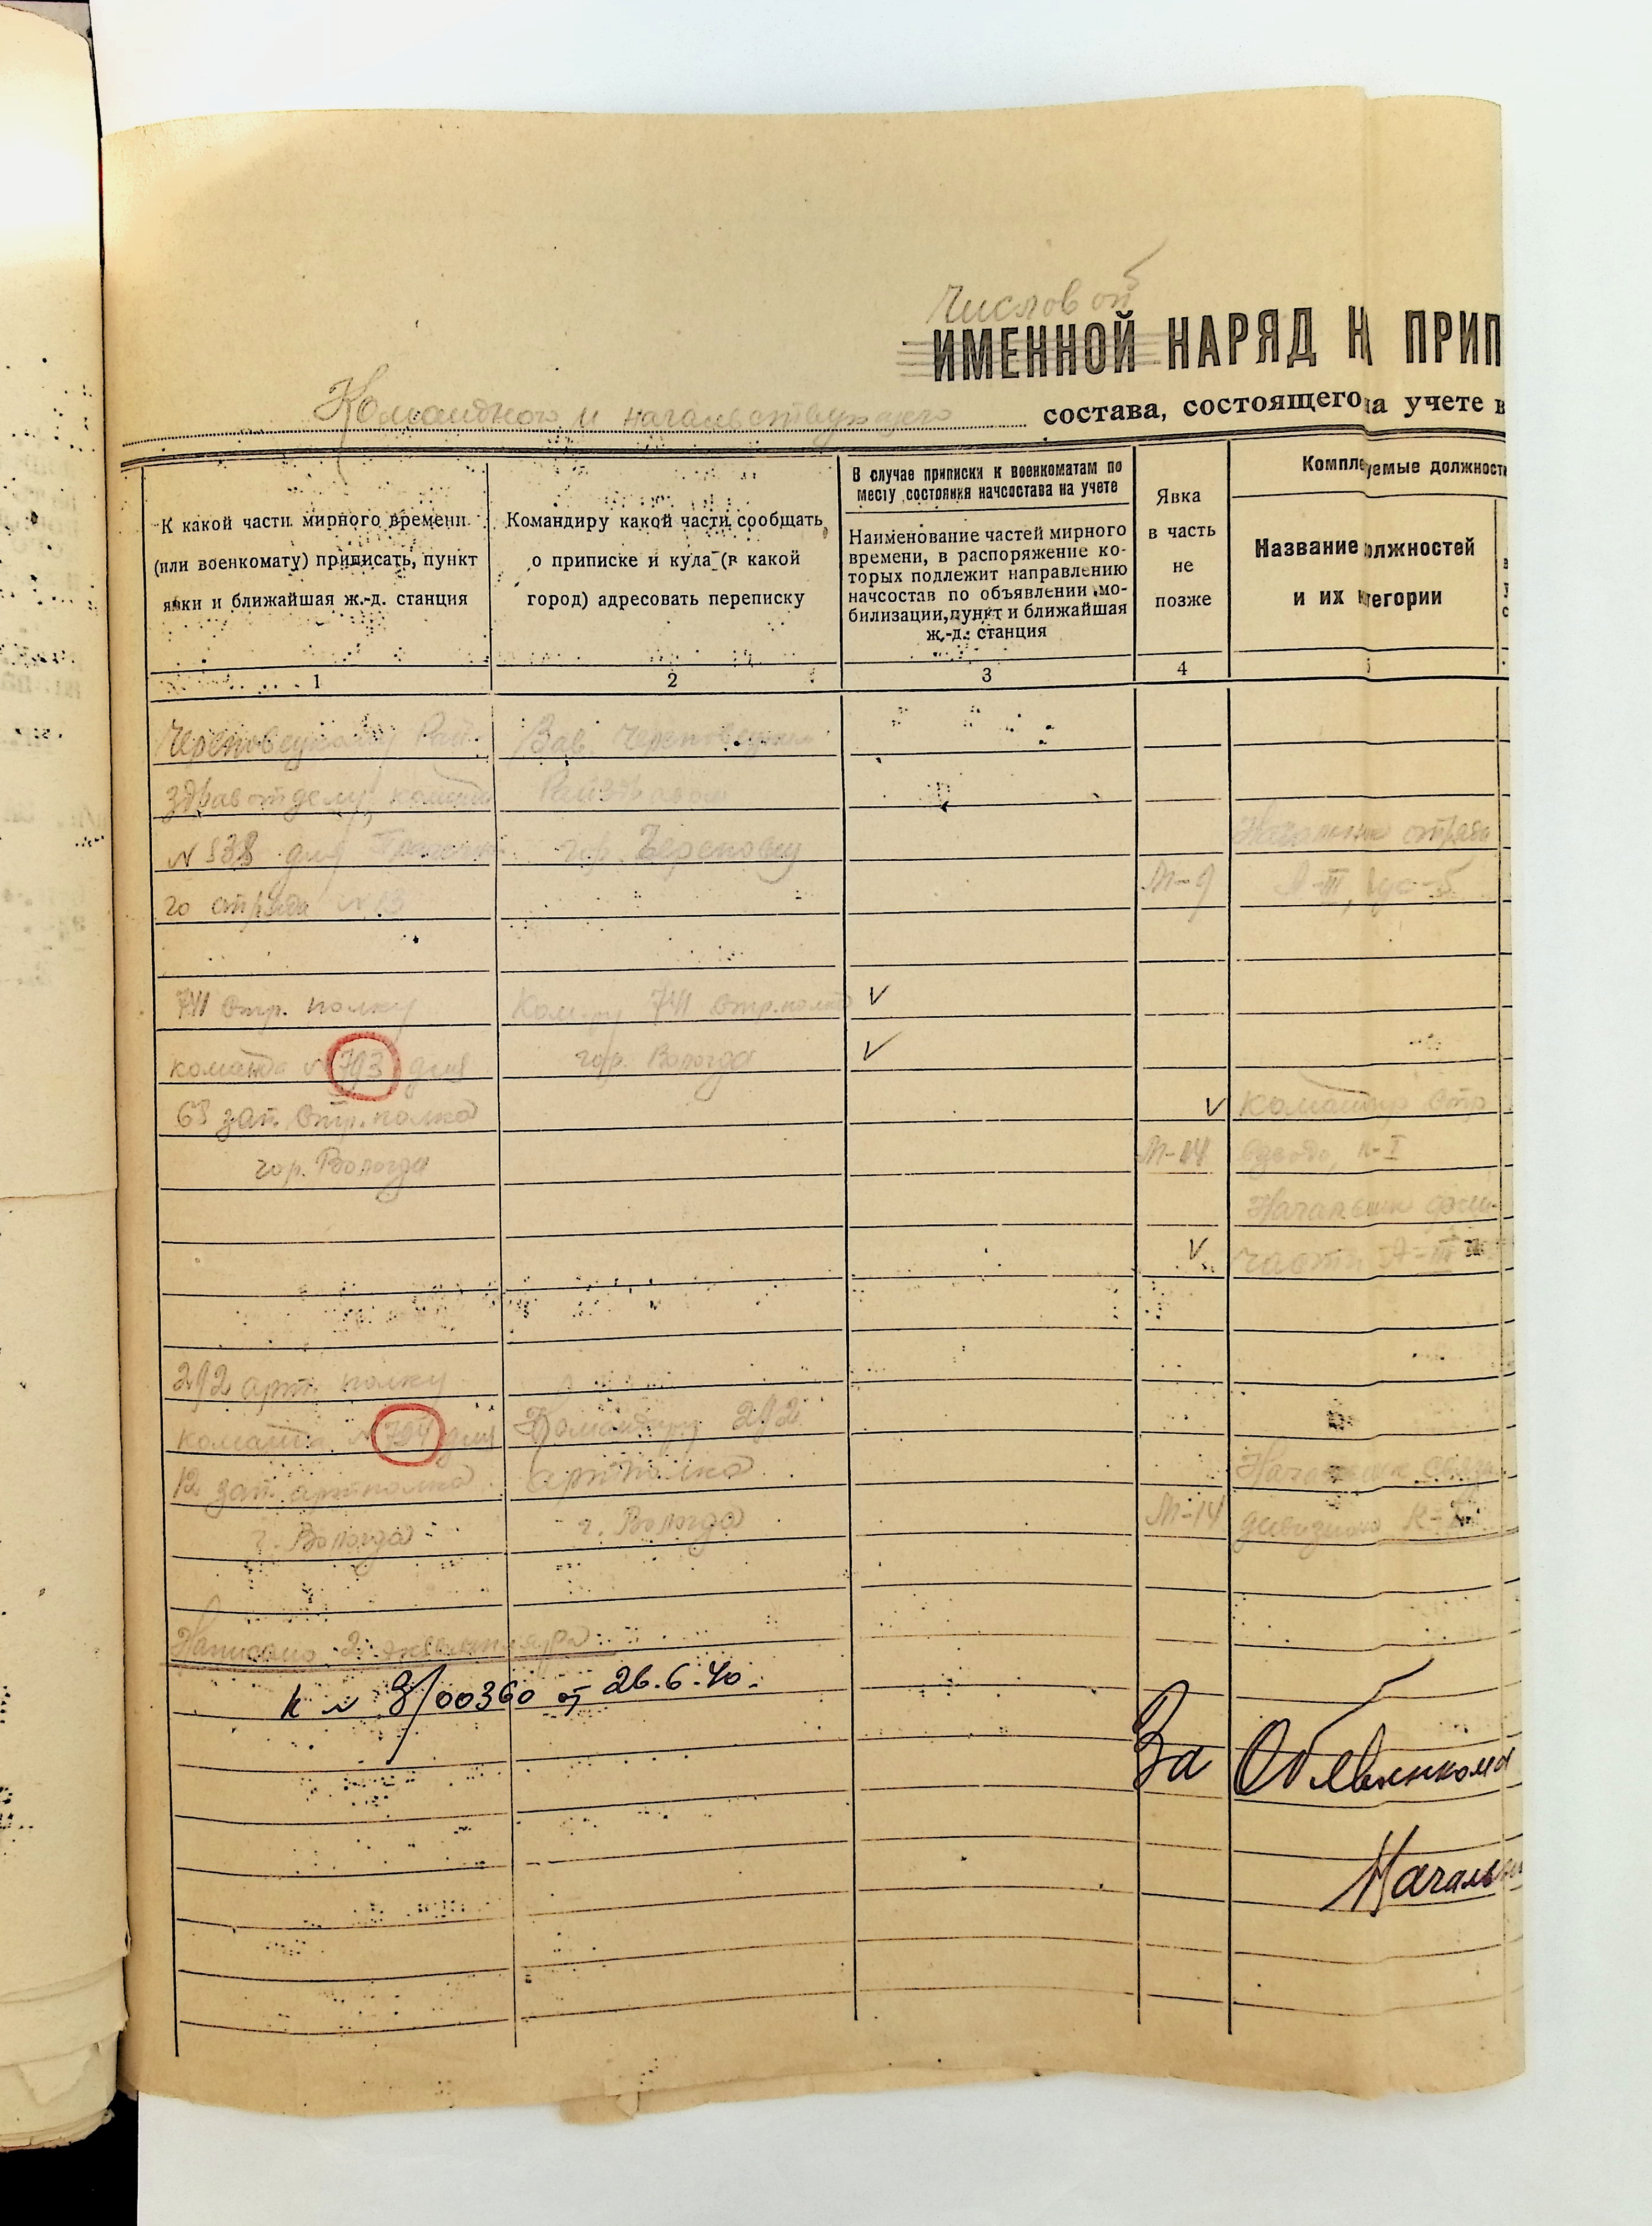 Числовой
ИМЕННОЙ НАРЯД Н ПРИП
Командного и начальствующего состава, состоящего на учете в
К какой части мирного времени
(или военкомату) приписать, пункт
явки и ближайшая ж.-д. станция
Командиру какой части сообщать
о приписке и куда (в какой
город) адресовать переписку
В случае приписки к военкоматам по
месту состояния начсостава на учете
Наименование частей мирного
времени, в распоряжение ко-
торых подлежит направлению
начсостав по объявлении мо-
билизации, пункт и ближайшая
ж.-д. станция
Явка
в часть
не
позже
Компле уемые должност
Название олжностей
и их к егории
1 2 3 4
Череповецкому Рай-
здравотделу, команда
N 538 для
го отряда N 13
Зав. Череповецким
Райздравом
гор. Череповец
М-9
Начальник отряда
741 стр. полку
команда N 793 для
68 зап. стр. полка
гор. Вологда
Ком-ру 741 стр. полка
гор. Вологда
V
V
V
М-14
Командир стр
взвода, К-I
Начальник
V
части А-III
292 арт. полку
команда N 794 для
12 зап. артполка
г. Вологда
Командиру 292
артполка
г. Вологда
М-14
Начальник связи
дивизиона К-
Написано 2 экземпляра
к N 3/00360 от 26.6.40.
За Облвоенкома
Начальн